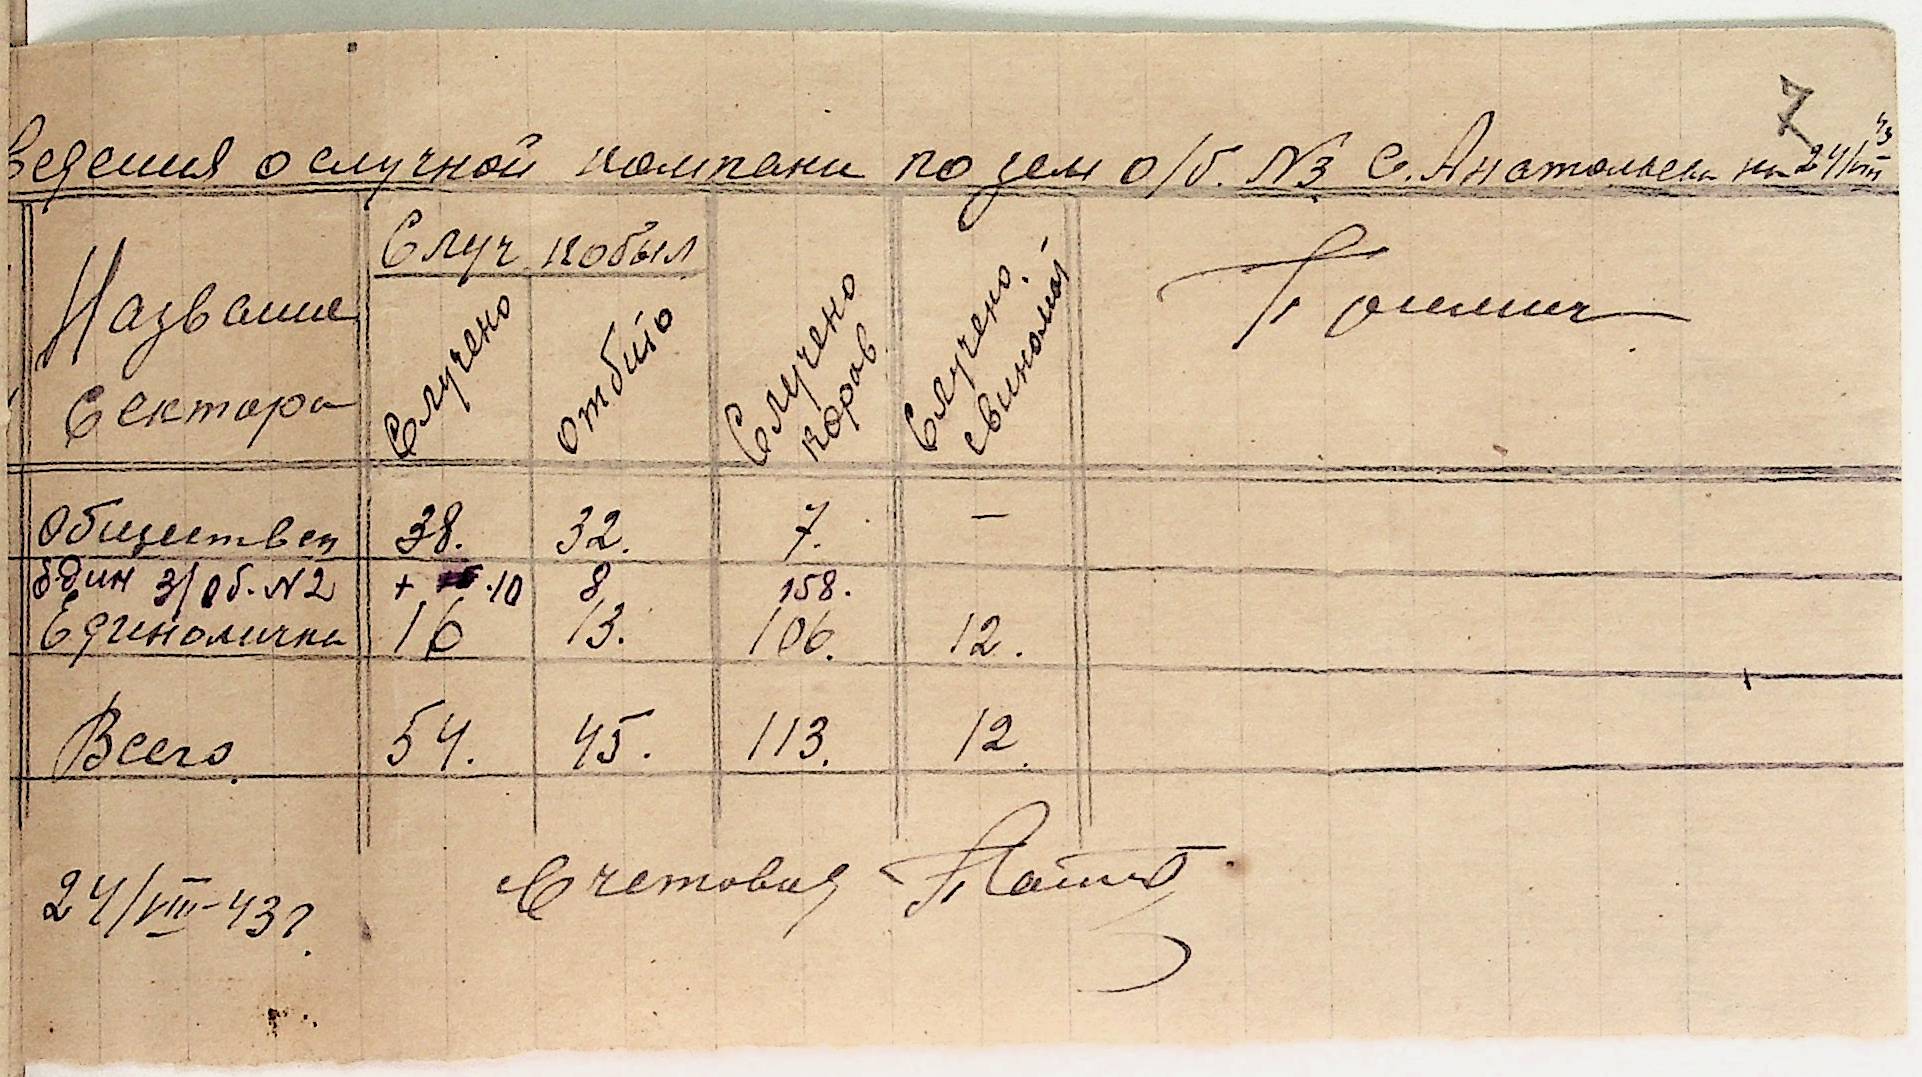 7
ведения о случной компани по зем о/б. №3 С. Анатольевка на 24/VIII 43
Название Сектора
Случ кобыл
Случено
отбито
Случено коров
Случено свиномат
Примеч
Обществен 38. 32. 7. —
Един з/об. №2 + 10 8 158.
Единолична 16 13. 106. 12.
Всего. 54. 45. 113. 12.
24/VIII-43 г.
Счетовод